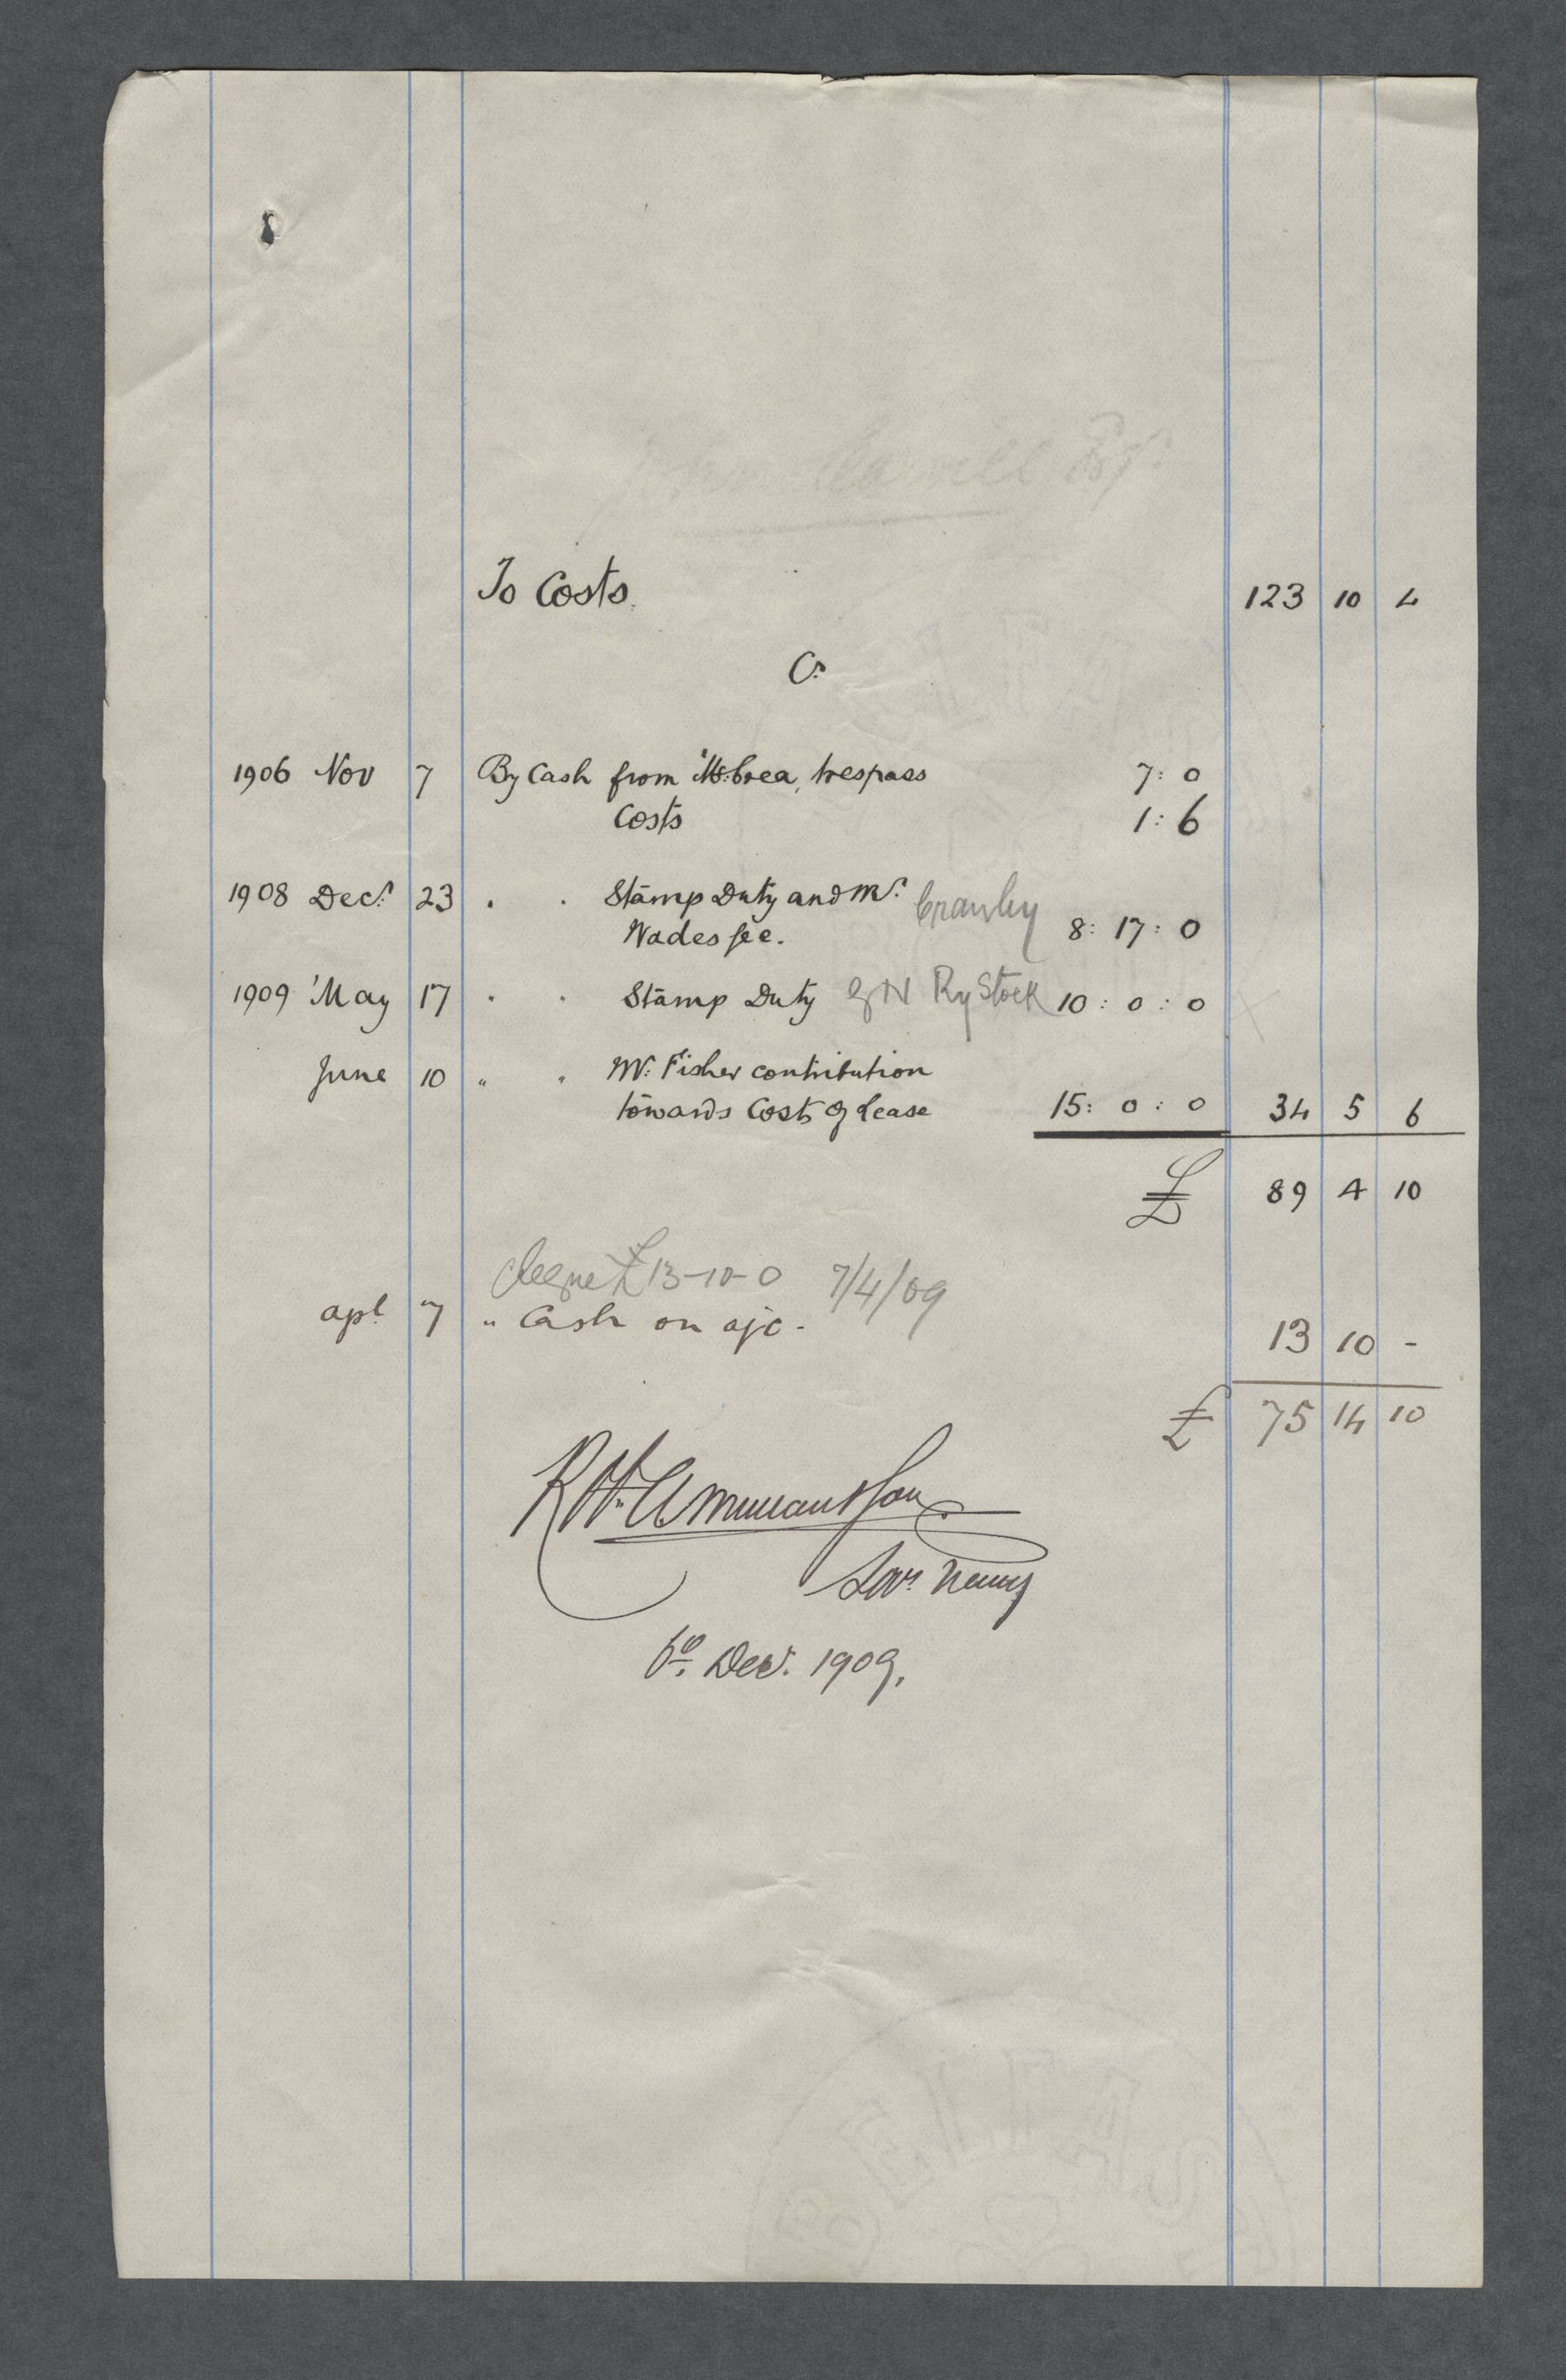 To Costs. 123 10 4
Cr.
1906 Nov 7 By Cash from McCrea, trespass 7: 0
Costs 1: 6
1908 Decr. 23 " " Stamp Duty and Mr. Crawley
Wades fee. 8: 17: 0
1909 May 17 " " Stamp Duty G N Ry Stock 10: 0: 0
June 10 " " Mr. Fisher contribution
towards Costs of Lease 15: 0: 0 34 5 6
£ 89 4 10
cheque £13-10-0 7/4/09
apl. 7 " Cash on a/c - 13 10 -
£ 75 14 10
Solrs. Newry
6th. Decr. 1909.